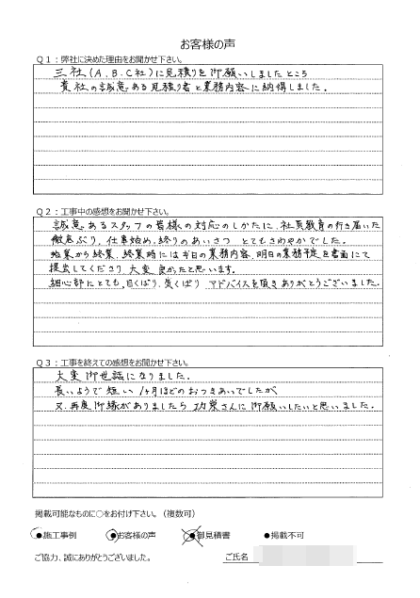 お客様の声
Q1：弊社に決めた理由をお聞かせ下さい。
三社（A.B.C社）に見積りを御願いしましたところ
貴社の誠意ある見積り書と業務内容に納得しました。
Q2：工事中の感想をお聞かせ下さい。
誠意あるスタッフの皆様の対応のしかたに、社員教育の行き届いた
徹底ぶり、仕事始め、終りのあいさつ とてもさわやかでした。
始業から終業、終業時には本日の業務内容、明日の業務予定を書面にて
提出してくださり 大変良かったと思います。
細心部にとても、目くばり、気くばり アドバイスを頂きありがとうございました。
Q3：工事を終えての感想をお聞かせ下さい。
大変御世話になりました。
長いようで短い 1ヶ月ほどのおつきあいでしたが
又、再度御縁がありましたら 功栄さんに御願いしたいと思いました。
掲載可能なものに○をお付け下さい。（複数可）
●施工事例 ●お客様の声 ●御見積書 ●掲載不可
ご協力、誠にありがとうございました。 ご氏名